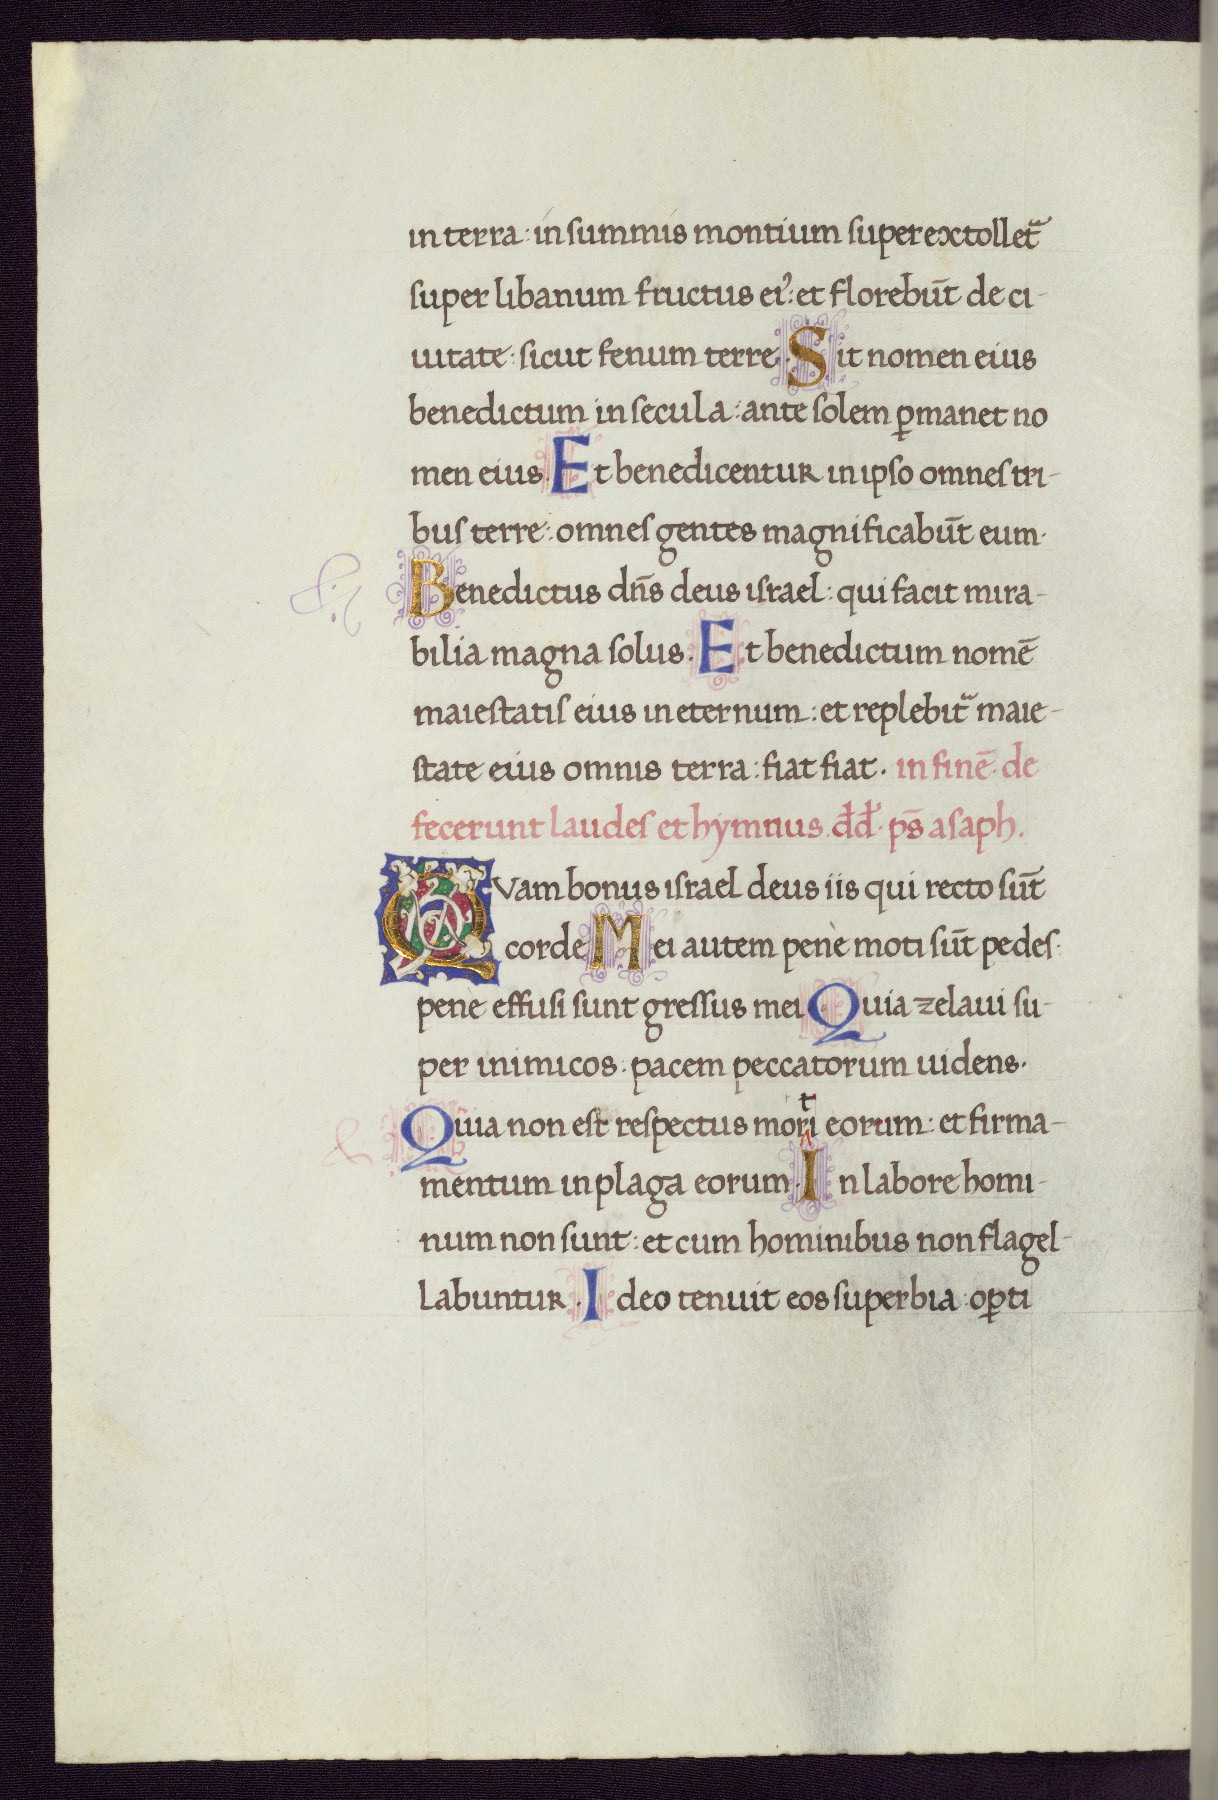 in terra: in summis montium superextolletᷓ
super libanum fructus eiꝰ: et florebūt de ci-
uitate: sicut fenum terre. Sit nomen eius
benedictum in secula: ante solem ꝑmanet no
men eius. Et benedicentur in ipso omnes tri-
bus terre: omnes gentes magnificabūt eum.
Benedictus dn̄s deus israel: qui facit mira-
bilia magna solus. Et benedictum nomē
maiestatis eius in eternum: et replebitᷓ maie-
state eius omnis terra: fiat fiat. in finē de
fecerunt laudes et hymnus. dd. ps̄ asaph.
Quam bonus israel deus iis qui recto sūt
corde Mei autem pene moti sūt pedes:
pene effusi sunt gressus mei Quia zelaui su-
per inimicos: pacem peccatorum uidens.
Quia non est respectus morti eorum: et firma-
mentum in plaga eorum. In labore homi-
num non sunt: et cum hominibus non flagel-
labuntur. Ideo tenuit eos superbia: oꝑti